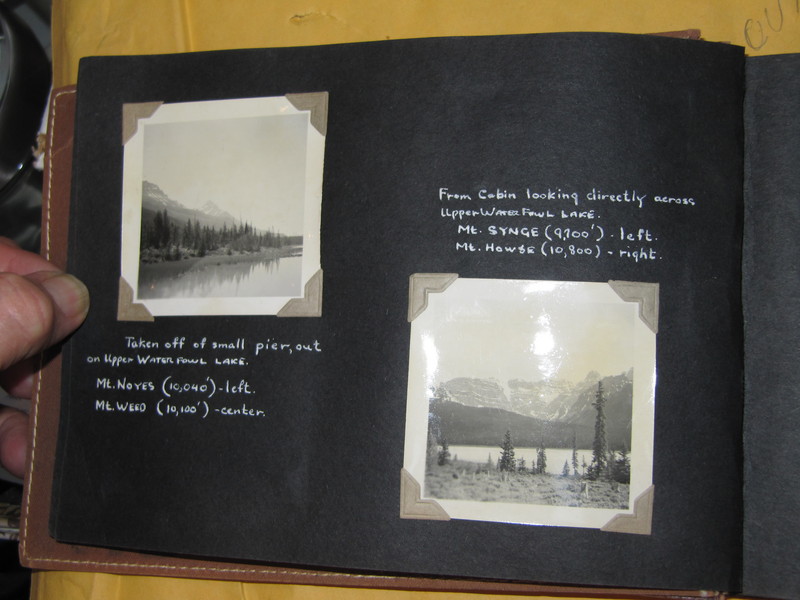 Taken off of small pier, out
on Upper WATER FOWL LAKE.
Mt. NOYES (10,040') - left.
Mt. WEED (10,100') - center.
From Cabin looking directly across
Upper WATER FOWL LAKE.
Mt. SYNGE (9,700') - left.
Mt. HOWSE (10,800) - right.
OUT